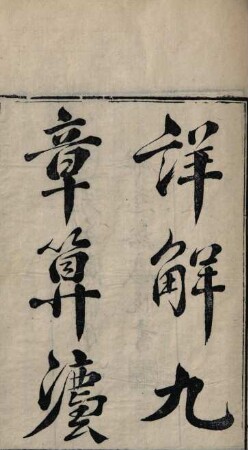 詳解九
章算灋